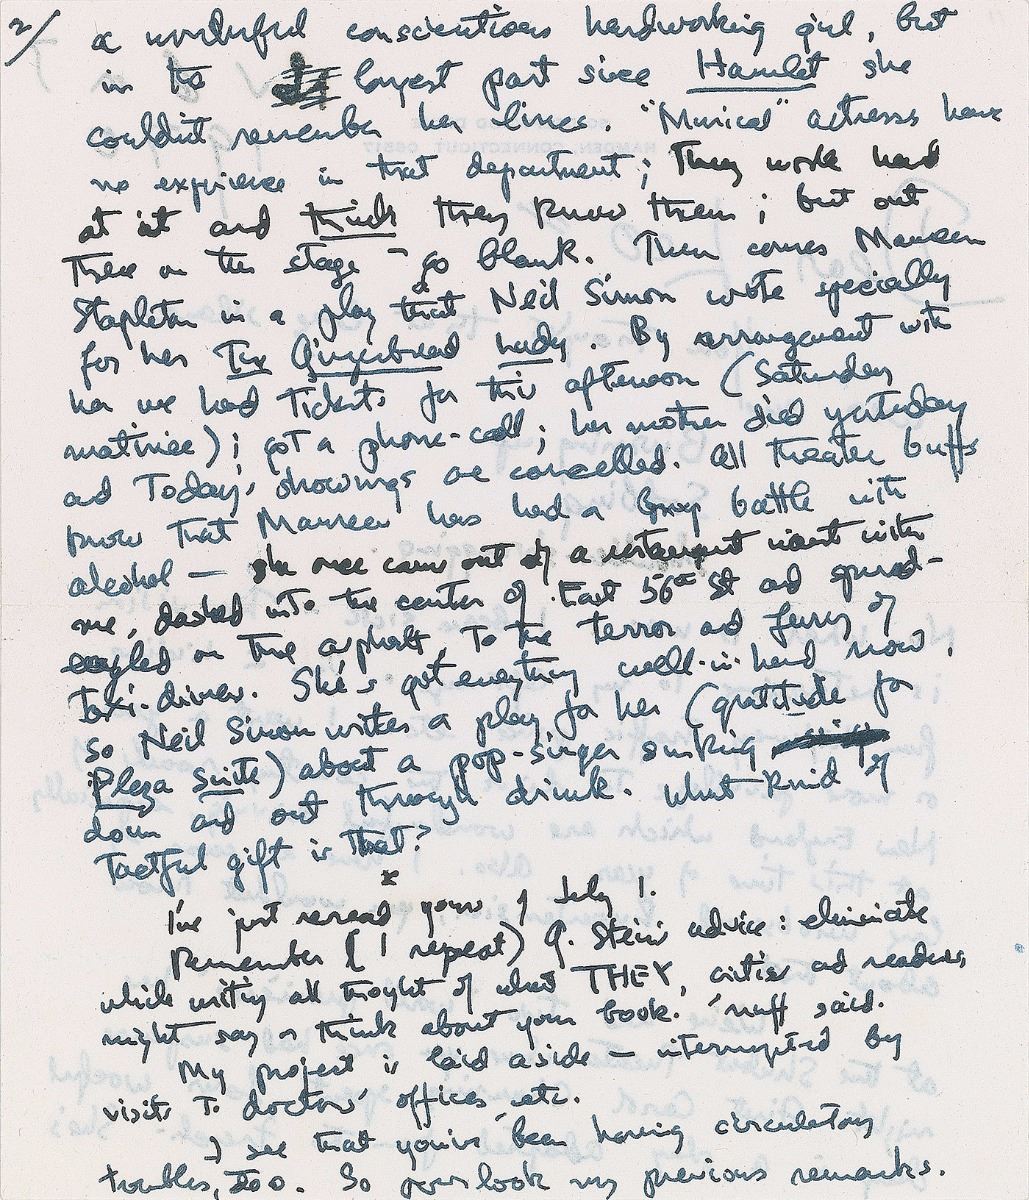 2/
a wonderful conscientious hardworking girl, but
in the longest part since Hamlet she
couldn't remember her lines. "Musical" actresses have
no experience in that department; They work hard
at it and think they know them; but out
There on the stage – go blank. Then comes Maureen
Stapleton in a play that Neil Simon wrote specially
for her The Gingerbread Lady. By arrangement with
her we had Tickets for this afternoon (Saturday
matinee); got a phone-call; her mother died yesterday
and Today's showings are cancelled. All theater buffs
know that Maureen has had a long battle with
alcohol — she once came out of a restaurant with
me, dashed into the center of East 56th St and spread-
eagled on the asphalt, To the terror and fury of
taxi-drivers. She's got everything well-in-hand now.
so Neil Simon writes a play for her (gratitude for
Plaza Suite) about a pop-singer sinking
down and out through drink. What kind of
Tactful gift is that?
x
I've just reread yours of July 1.
Remember (I repeat) G. Stein's advice: eliminate
while writing all thought of what THEY, critics and readers,
might say or think about your book. 'nuff said.
My project is laid aside – interrupted by
visits To doctors' offices, etc.
I see that you've been having circulatory
troubles, too. So overlook my previous remarks.